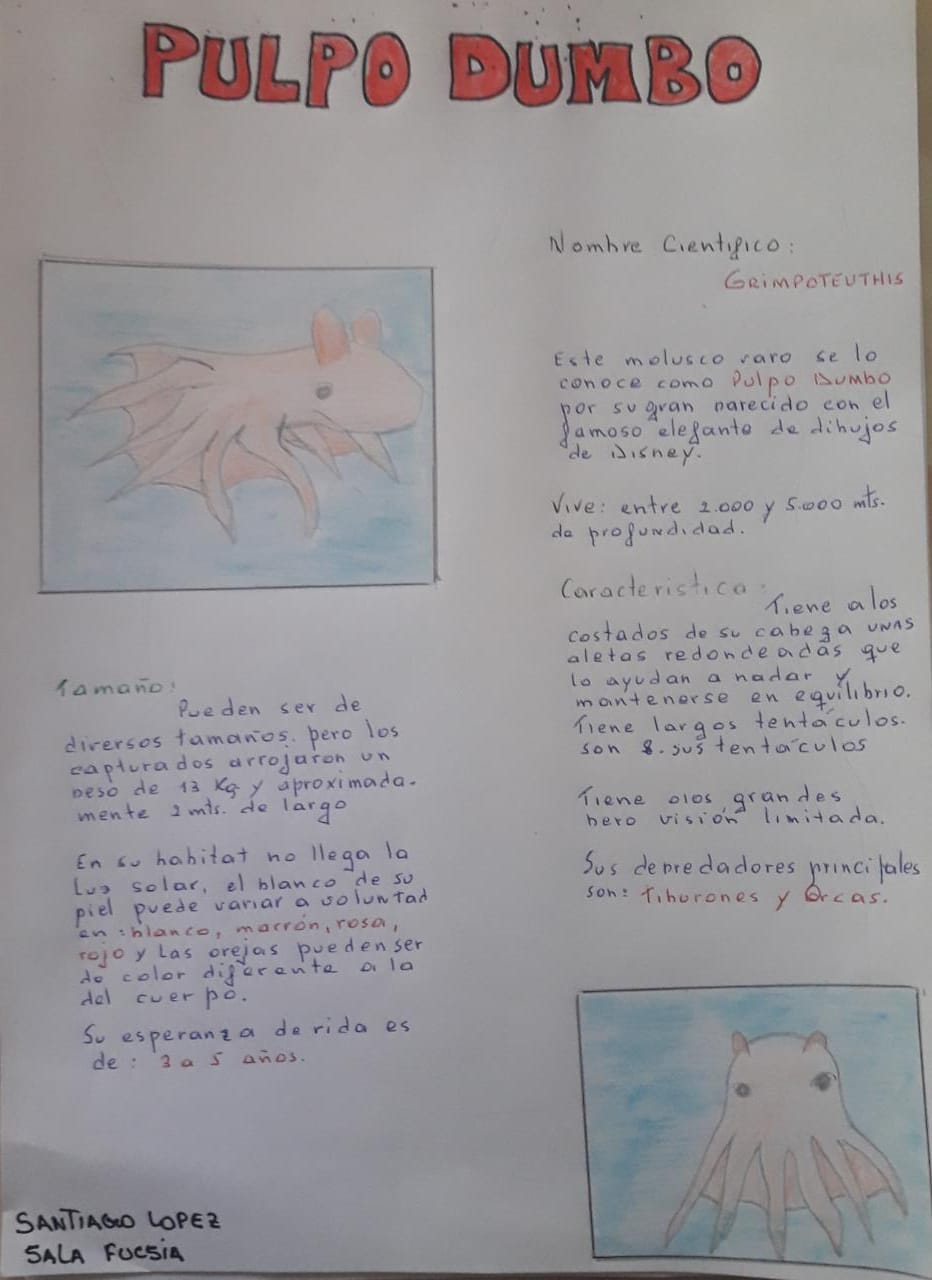 PULPO DUMBO
Nombre Cientifico:
GRIMPOTEUTHIS
Este molusco raro se lo
conoce como Pulpo Dumbo
por su gran parecido con el
famoso elefante de dibujos
de Disney.
Vive: entre 2.000 y 5.000 mts.
de profundidad.
Caracteristica:
Tiene a los
costados de su cabeza unas
aletas redondeadas que
lo ayudan a nadar y
mantenerse en equilibrio.
Tiene largos tentáculos.
son 8. sus tentáculos
Tiene ojos grandes
pero visión limitada.
Sus depredadores principales
son: Tiburones y Orcas.
Tamaño:
Pueden ser de
diversos tamaños. pero los
capturados arrojaron un
peso de 13 Kg y aproximada-
mente 2 mts. de largo
En su habitat no llega la
Luz solar, el blanco de su
piel puede variar a voluntad
en: blanco, marrón, rosa,
rojo y Las orejas pueden ser
de color diferente a la
del cuerpo.
Su esperanza de vida es
de: 3 a 5 años.
SANTIAGO LOPEZ
SALA FUCSIA